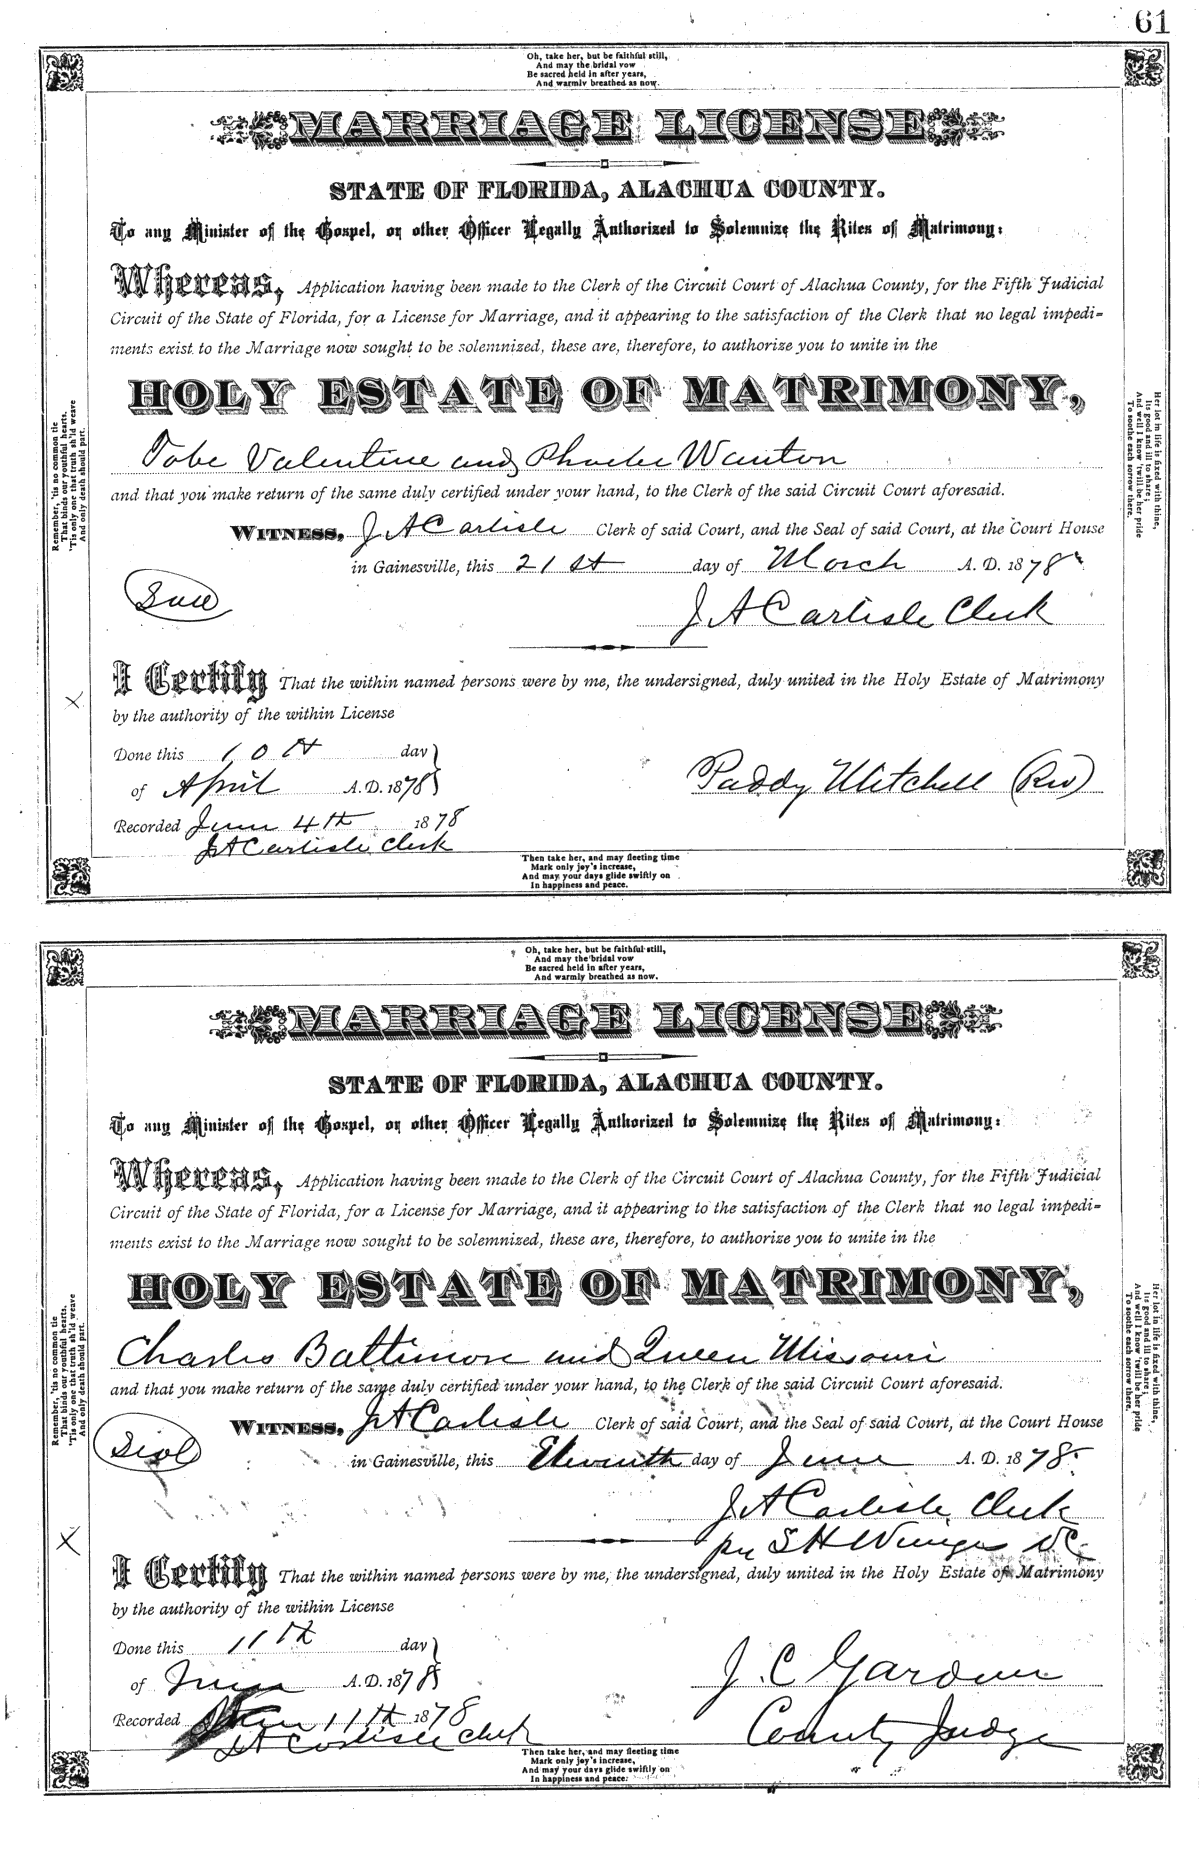 61
Oh, take her, but be faithful still,
And may the bridal vow
Be sacred held in after years,
And warmly breathed as now.
MARRIAGE LICENSE
STATE OF FLORIDA, ALACHUA COUNTY.
To any Minister of the Gospel, or other Officer Legally Authorized to Solemnize the Rites of Matrimony:
Whereas, Application having been made to the Clerk of the Circuit Court of Alachua County, for the Fifth Judicial
Circuit of the State of Florida, for a License for Marriage, and it appearing to the satisfaction of the Clerk that no legal impedi-
ments exist to the Marriage now sought to be solemnized, these are, therefore, to authorize you to unite in the
HOLY ESTATE OF MATRIMONY,
Tobe Valentine and Phoebe Wanton
and that you make return of the same duly certified under your hand, to the Clerk of the said Circuit Court aforesaid.
WITNESS, J A Carlisle Clerk of said Court, and the Seal of said Court, at the Court House
in Gainesville, this 21st day of March A. D. 1878
Seal
J A Carlisle Clerk
I Certify That the within named persons were by me, the undersigned, duly united in the Holy Estate of Matrimony
by the authority of the within License
Done this 10th day
of April A.D. 1878
Paddy Mitchell (Rev)
Recorded June 4th 1878
J A Carlisle Clerk
Remember, 'tis no common tie
That binds our youthful hearts,
'Tis only one that truth sh'ld weave
And only death should part.
Her lot in life is fixed with thine,
Its good and ill to share;
And well I know 'twill be her pride
To soothe each sorrow there.
X
Then take her, and may fleeting time
Mark only joy's increase,
And may your days glide swiftly on
In happiness and peace.
Oh, take her, but be faithful still,
And may the bridal vow
Be sacred held in after years,
And warmly breathed as now.
MARRIAGE LICENSE
STATE OF FLORIDA, ALACHUA COUNTY.
To any Minister of the Gospel, or other Officer Legally Authorized to Solemnize the Rites of Matrimony:
Whereas, Application having been made to the Clerk of the Circuit Court of Alachua County, for the Fifth Judicial
Circuit of the State of Florida, for a License for Marriage, and it appearing to the satisfaction of the Clerk that no legal impedi-
ments exist to the Marriage now sought to be solemnized, these are, therefore, to authorize you to unite in the
HOLY ESTATE OF MATRIMONY,
Charles Baltimore and Queen Missouri
and that you make return of the same duly certified under your hand, to the Clerk of the said Circuit Court aforesaid.
WITNESS, J A Carlisle Clerk of said Court, and the Seal of said Court, at the Court House
Seal
in Gainesville, this Eleventh day of June A. D. 1878
J A Carlisle Clerk
per S H DC
I Certify That the within named persons were by me, the undersigned, duly united in the Holy Estate of Matrimony
by the authority of the within License
Done this 11th day
of June A.D. 1878
J. C Gardner
County Judge
Recorded June 11th 1878
J A Carlisle Clerk
Remember, 'tis no common tie
That binds our youthful hearts,
'Tis only one that truth sh'ld weave
And only death should part.
Her lot in life is fixed with thine,
Its good and ill to share;
And well I know 'twill be her pride
To soothe each sorrow there.
X
Then take her, and may fleeting time
Mark only joy's increase,
And may your days glide swiftly on
In happiness and peace.